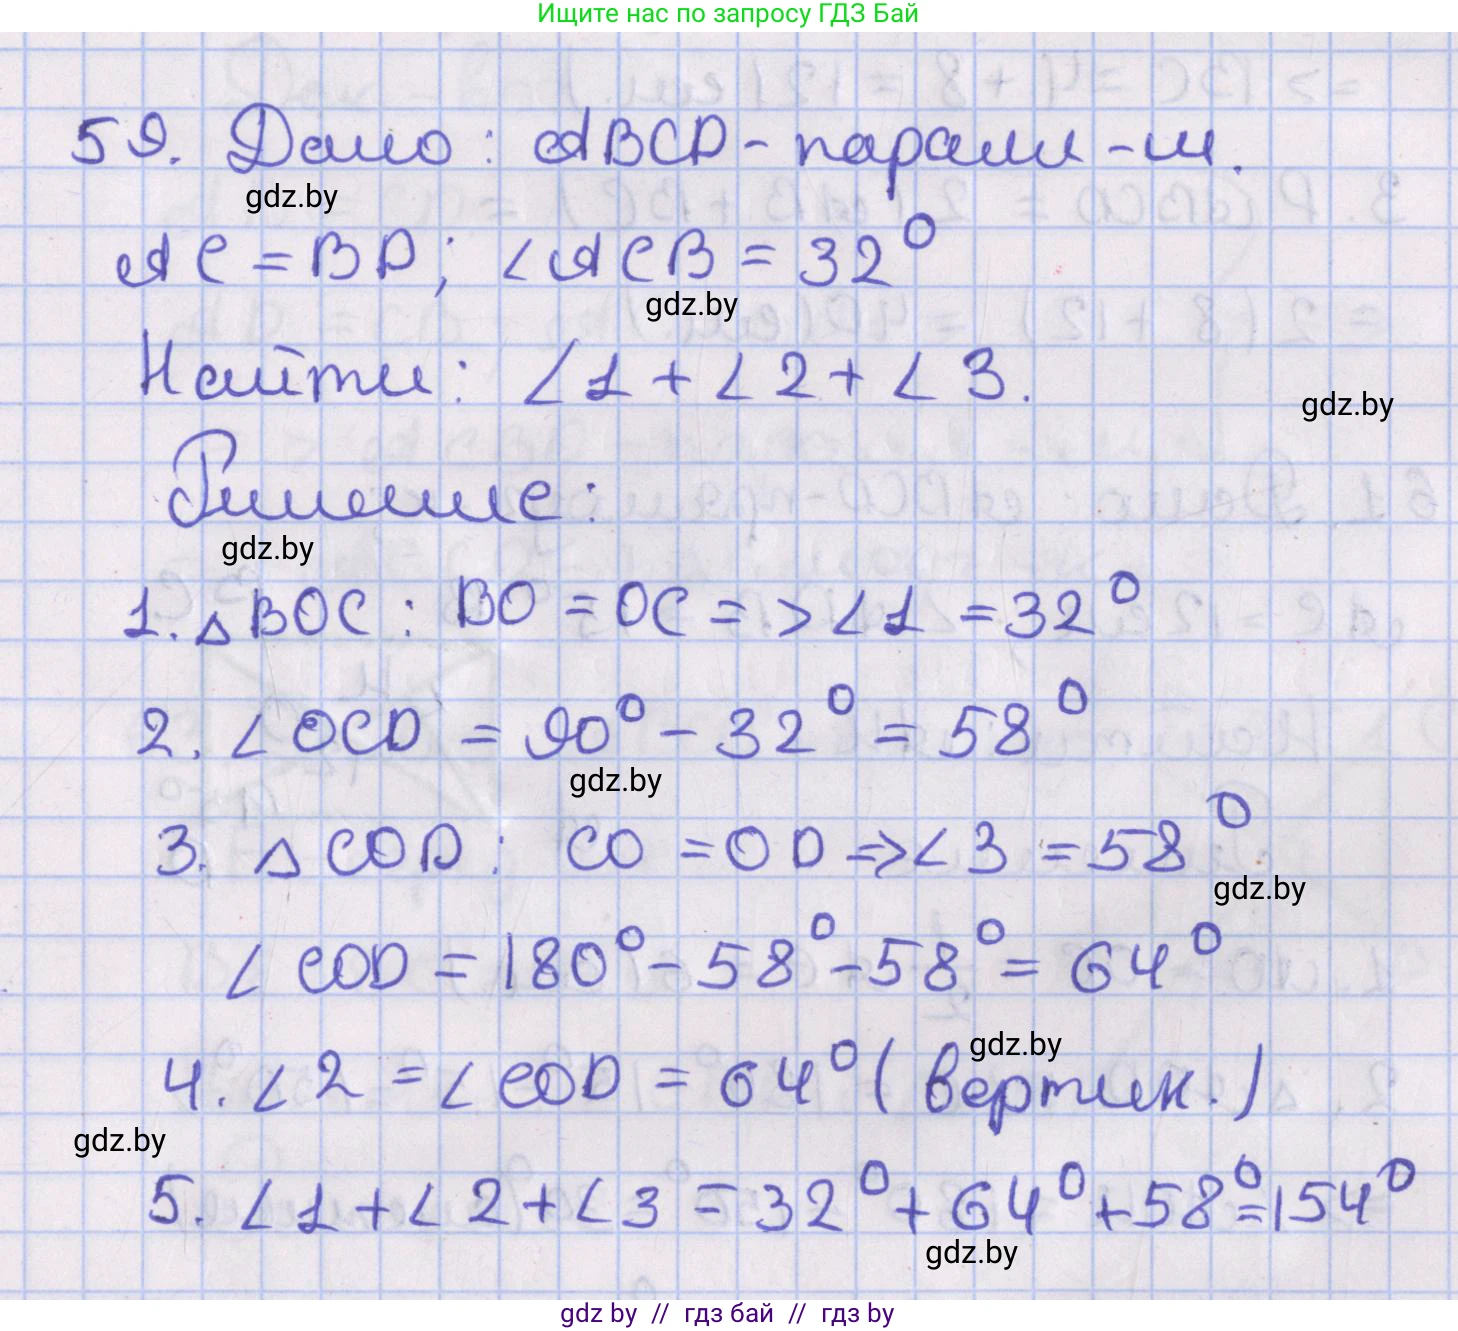 Ищите нас по запросу ГДЗ Бай
59. Дано: ABCD - парал-м.
gdz.by
AC = BD; ∠ACB = 32°
gdz.by
Найти: ∠1 + ∠2 + ∠3.
gdz.by
Решение:
gdz.by
1. △BOC: BO = OC => ∠1 = 32°
2. ∠OCD = 90° - 32° = 58°
gdz.by
3. △COD: CO = OD => ∠3 = 58°
gdz.by
∠COD = 180° - 58° - 58° = 64°
gdz.by
4. ∠2 = ∠COD = 64° (вертик.)
gdz.by
5. ∠1 + ∠2 + ∠3 = 32° + 64° + 58° = 154°
gdz.by
gdz by // гдз бай // гдз by